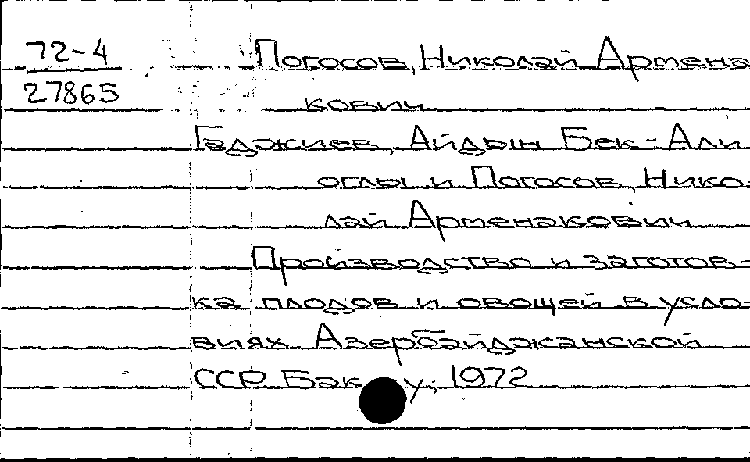 72-4
27865
Погосов, Николай Армена-
кович
Гаджиев, Айдын Бек-Али
оглы и Погосов, Нико-
лай Арменакович
Производство и заготов-
ка плодов и овощей в усло-
виях Азербайджанской
ССР. Баку, 1972